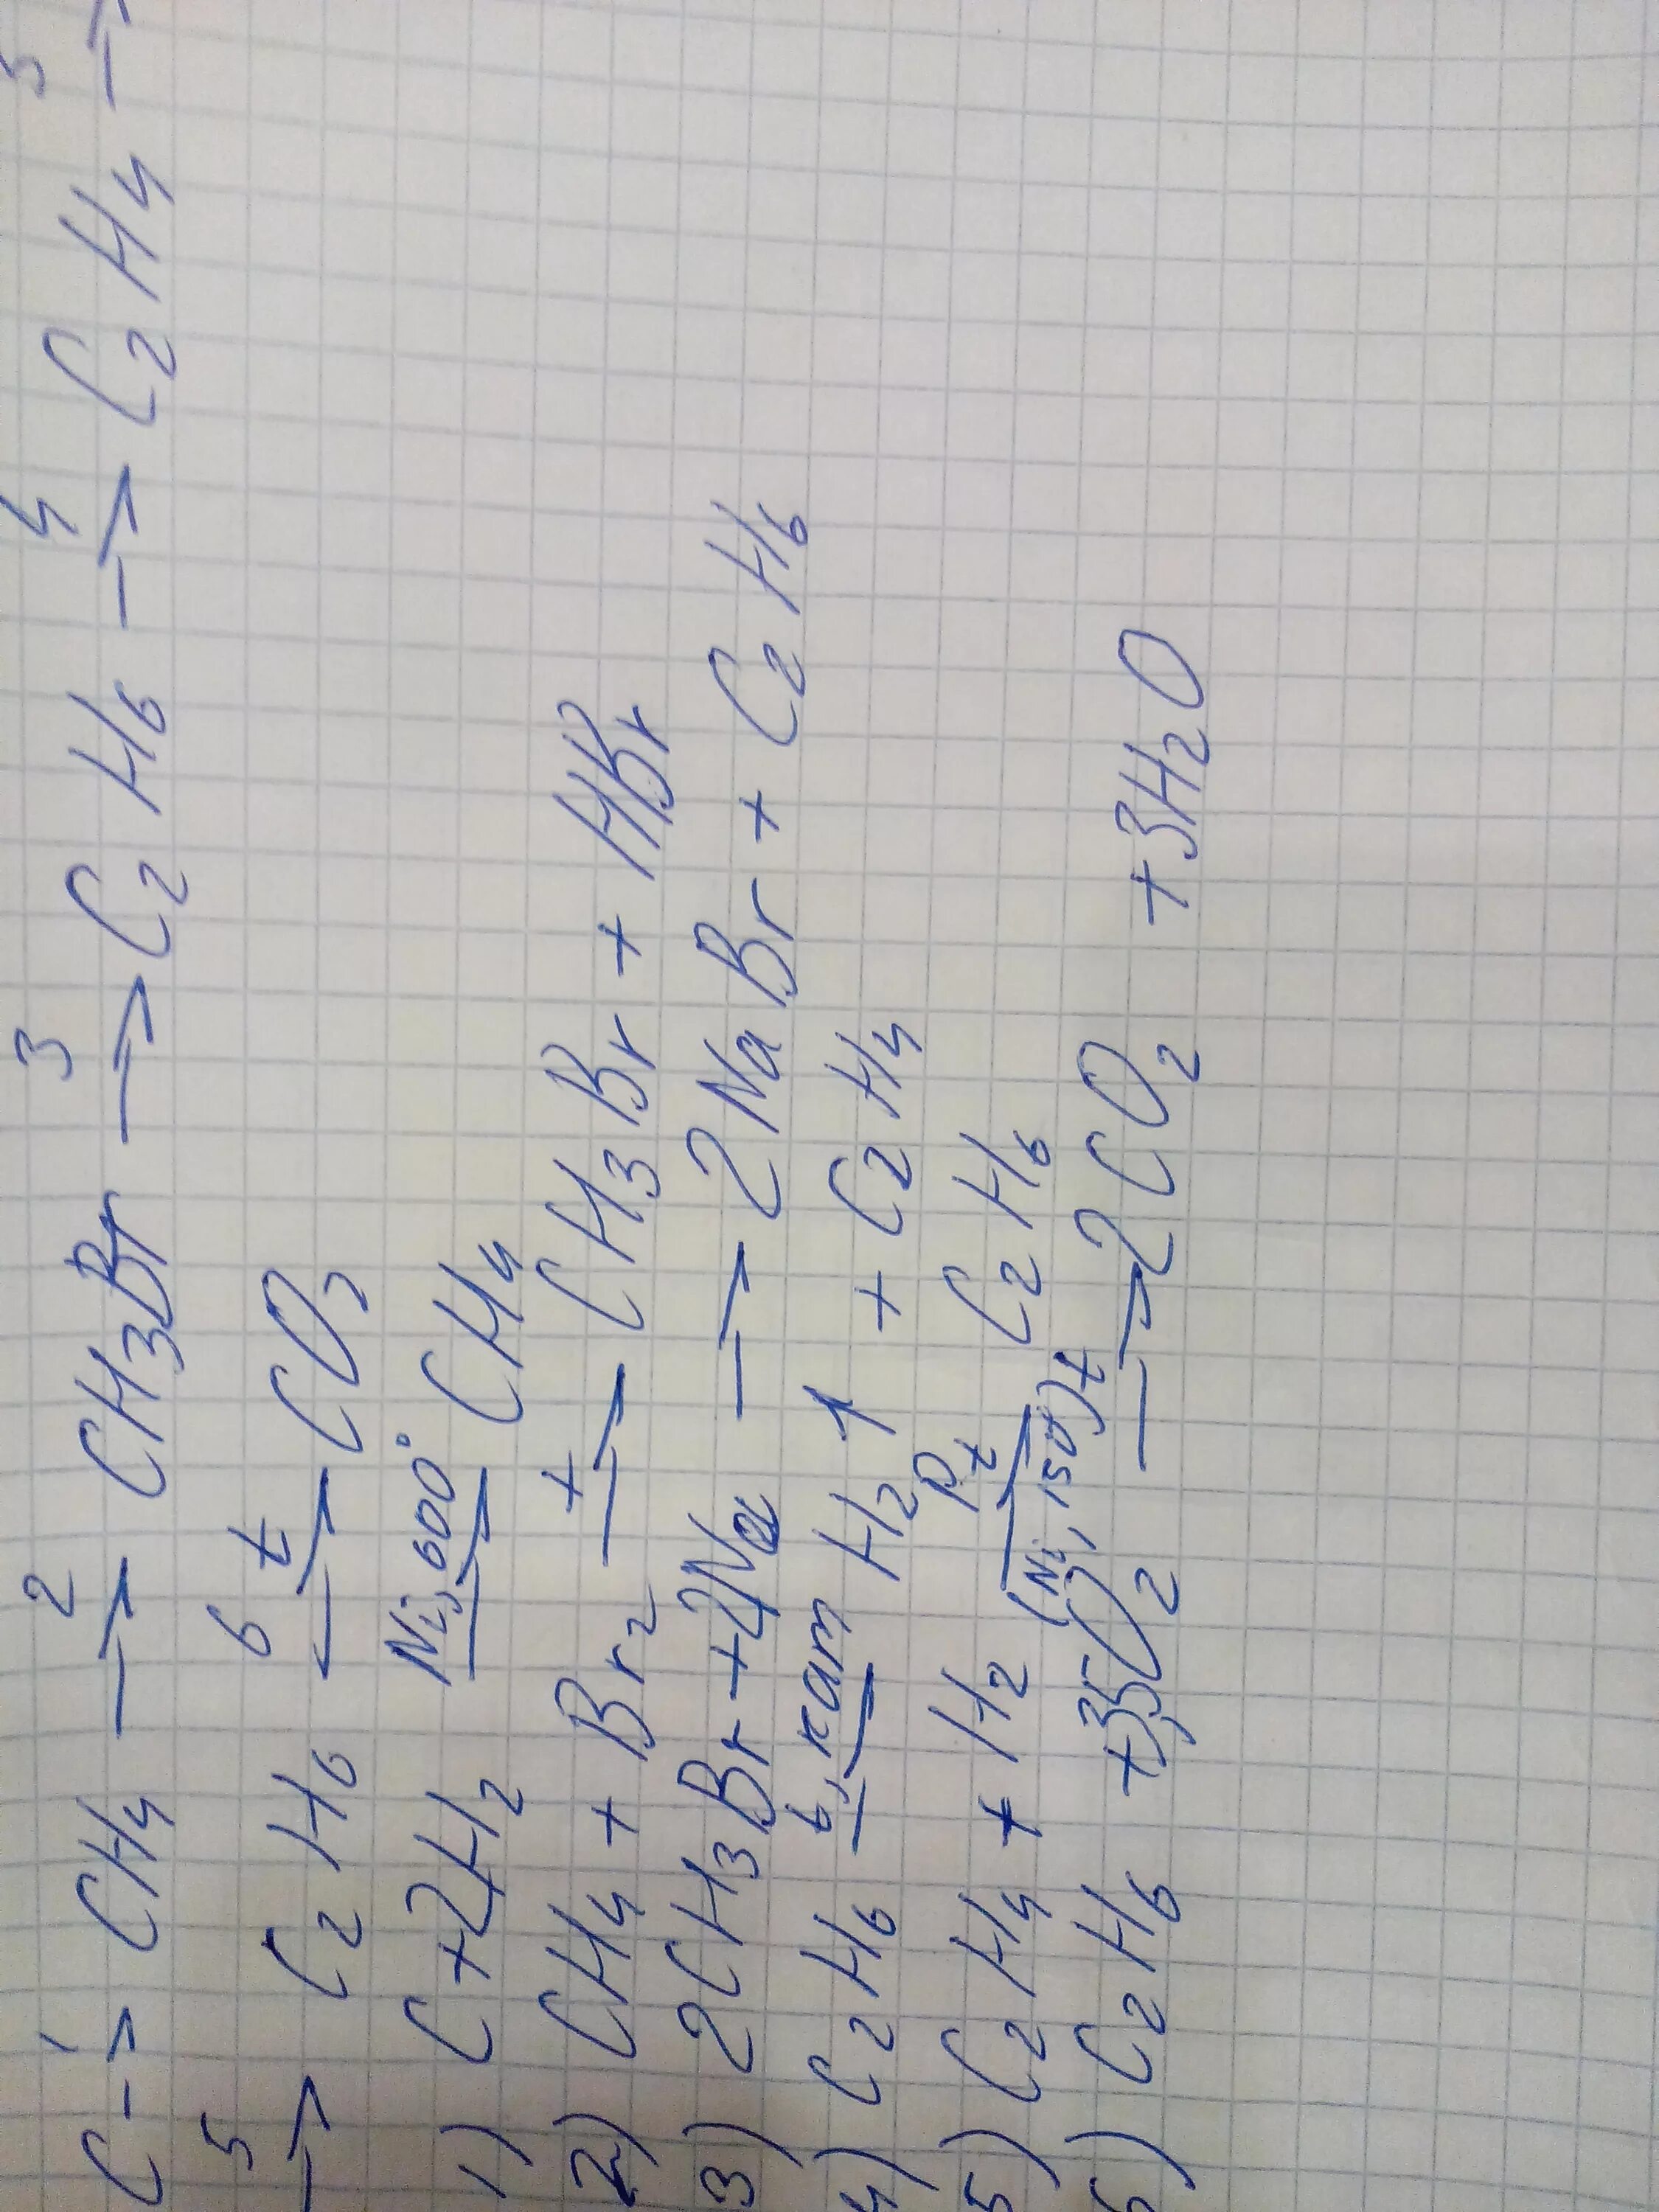 C →¹ CH₄ →² CH₃Br →³ C₂H₆ →⁴ C₂H₄ →⁵
→⁵ C₂H₆ →⁶ t CO₂
1) C + 2H₂ Ni, 600° → CH₄
2) CH₄ + Br₂ t → CH₃Br + HBr
3) 2CH₃Br + 2Na → 2NaBr + C₂H₆
4) C₂H₆ t, кат → H₂ ↑ + C₂H₄
5) C₂H₄ + H₂ Pt → (Ni, 150) C₂H₆
6) C₂H₆ + 3,5O₂ t → 2CO₂ + 3H₂O